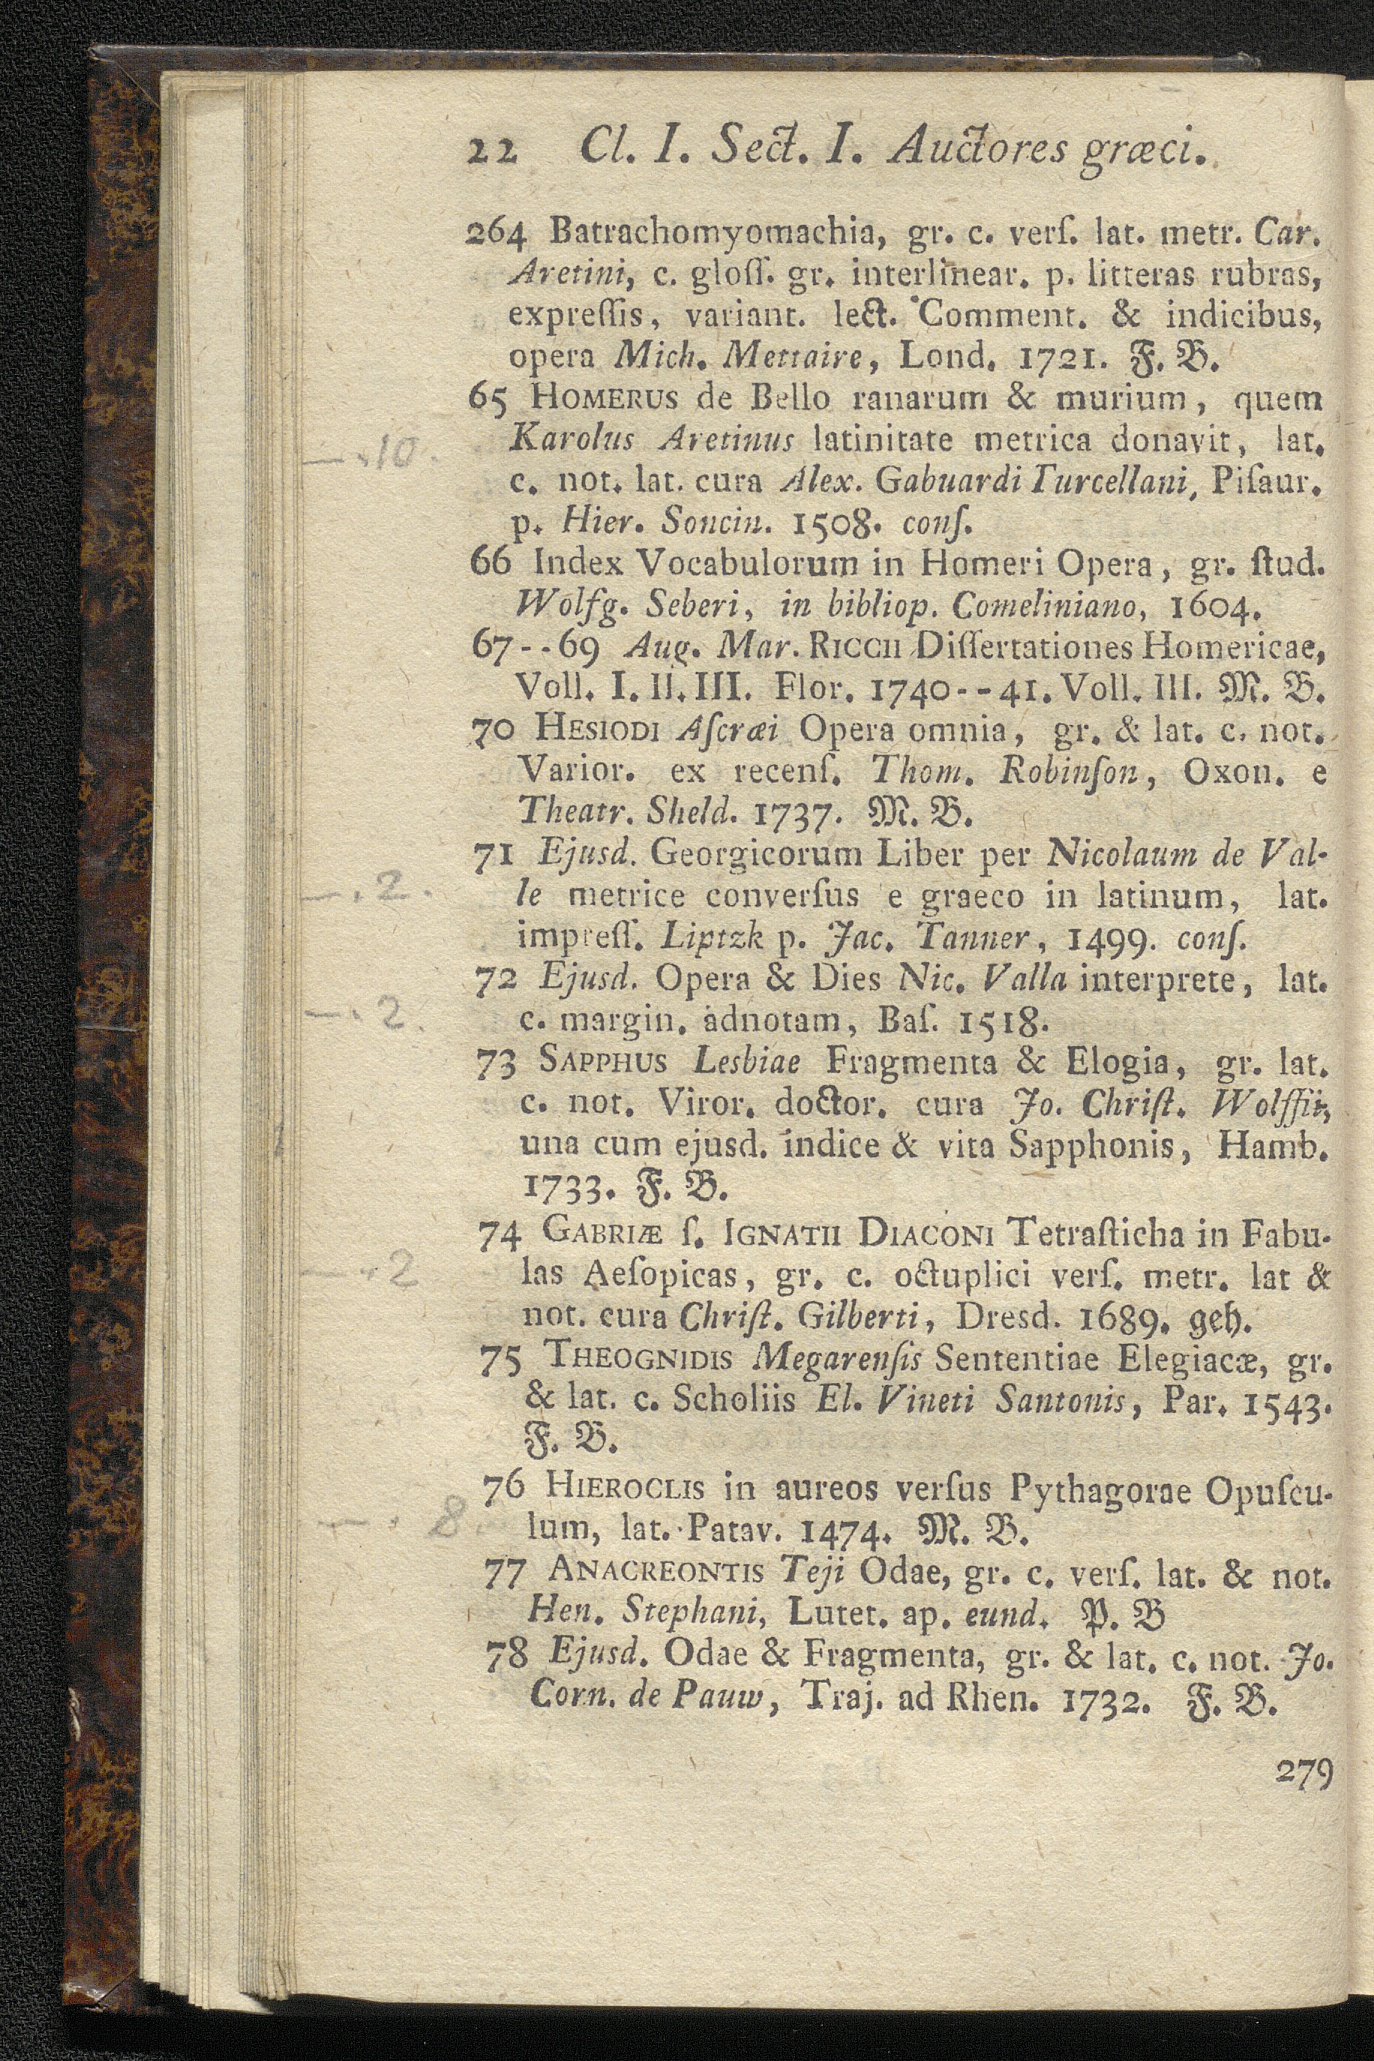 22 Cl. I. Sect. I. Auctores græci.
264 Batrachomyomachia, gr. c. verſ. lat. metr. Car.
Aretini, c. gloſſ. gr. interlinear. p. litteras rubras,
expreſſis, variant. lect. Comment. & indicibus,
opera Mich. Mettaire, Lond. 1721. F. B.
65 HOMERUS de Bello ranarum & murium, quem
Karolus Aretinus latinitate metrica donavit, lat.
—. 10.
c. not. lat. cura Alex. Gabuardi Turcellani, Piſaur.
p. Hier. Soncin. 1508. conſ.
66 Index Vocabulorum in Homeri Opera, gr. ſtud.
Wolfg. Seberi, in bibliop. Comeliniano, 1604.
67--69 Aug. Mar. RICCII Diſſertationes Homericae,
Voll. I. II. III. Flor. 1740--41. Voll. III. M. B.
70 HESIODI Aſcræi Opera omnia, gr. & lat. c. not.
Varior. ex recenſ. Thom. Robinſon, Oxon. e
Theatr. Sheld. 1737. M. B.
71 Ejusd. Georgicorum Liber per Nicolaum de Val-
—. 2.
le metrice converſus e graeco in latinum, lat.
impreſſ. Liptzk p. Jac. Tanner, 1499. conſ.
72 Ejusd. Opera & Dies Nic. Valla interprete, lat.
—. 2.
c. margin. adnotam, Baſ. 1518.
73 SAPPHUS Lesbiae Fragmenta & Elogia, gr. lat.
c. not. Viror. doctor. cura Jo. Chriſt. Wolffii,
una cum ejusd. indice & vita Sapphonis, Hamb.
1733. F. B.
74 GABRIÆ ſ. IGNATII DIACONI Tetraſticha in Fabu-
—. 2
las Aeſopicas, gr. c. octuplici verſ. metr. lat &
not. cura Chriſt. Gilberti, Dresd. 1689. geh.
75 THEOGNIDIS Megarenſis Sententiae Elegiacæ, gr.
& lat. c. Scholiis El. Vineti Santonis, Par. 1543.
F. B.
76 HIEROCLIS in aureos verſus Pythagorae Opuſcu-
—. 8.
lum, lat. Patav. 1474. M. B.
77 ANACREONTIS Teji Odae, gr. c. verſ. lat. & not.
Hen. Stephani, Lutet. ap. eund. P. B
78 Ejusd. Odae & Fragmenta, gr. & lat. c. not. Jo.
Corn. de Pauw, Traj. ad Rhen. 1732. F. B.
279